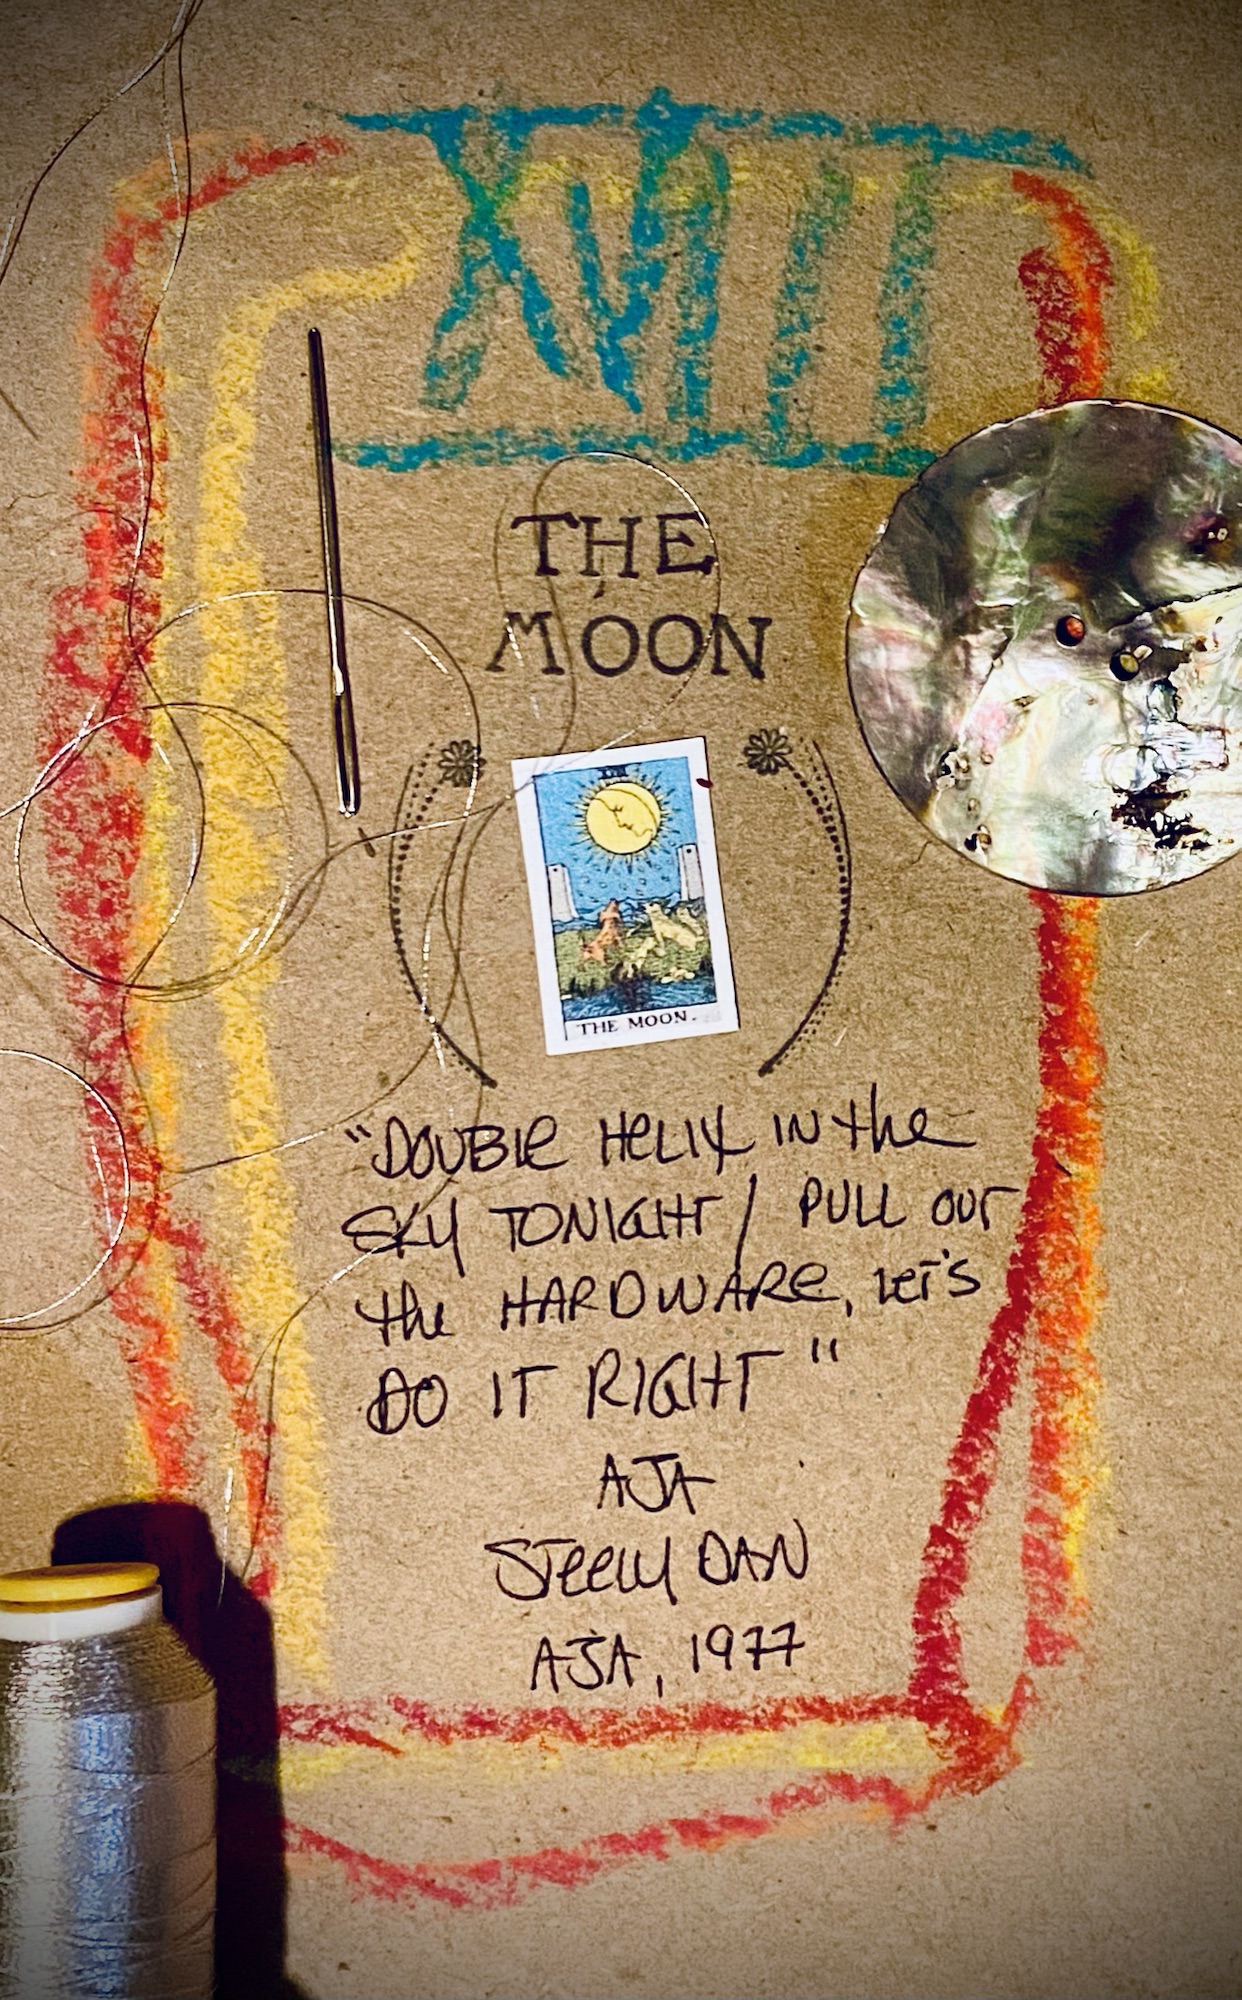 XVIII
THE
MOON
THE MOON.
"DOUBLE HELIX IN the
SKY TONIGHT / PULL OUT
the HARDWARE, LET'S
DO IT RIGHT"
AJA
STEELY DAN
AJA, 1977